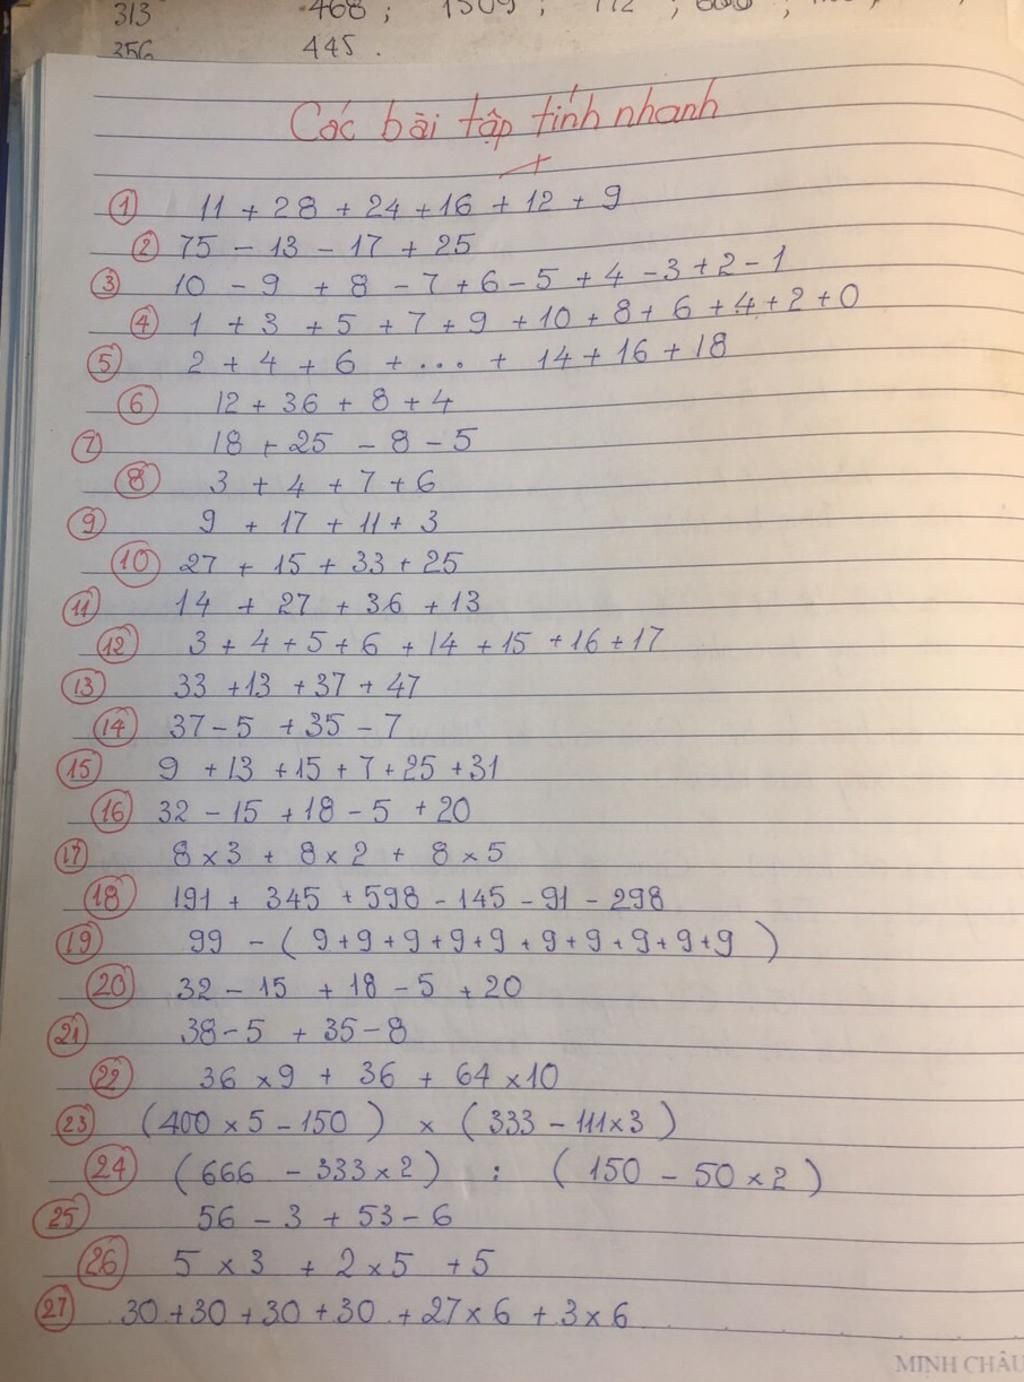 313 468 ; 1509 ; 112 ;
356 445 .
Các bài tập tính nhanh
① 11 + 28 + 24 + 16 + 12 + 9
② 75 - 13 - 17 + 25
③ 10 - 9 + 8 - 7 + 6 - 5 + 4 - 3 + 2 - 1
④ 1 + 3 + 5 + 7 + 9 + 10 + 8 + 6 + 4 + 2 + 0
⑤ 2 + 4 + 6 + ... + 14 + 16 + 18
⑥ 12 + 36 + 8 + 4
⑦ 18 + 25 - 8 - 5
⑧ 3 + 4 + 7 + 6
⑨ 9 + 17 + 11 + 3
⑩ 27 + 15 + 33 + 25
⑪ 14 + 27 + 36 + 13
⑫ 3 + 4 + 5 + 6 + 14 + 15 + 16 + 17
⑬ 33 + 13 + 37 + 47
⑭ 37 - 5 + 35 - 7
⑮ 9 + 13 + 15 + 7 + 25 + 31
⑯ 32 - 15 + 18 - 5 + 20
⑰ 8 x 3 + 8 x 2 + 8 x 5
⑱ 191 + 345 + 598 - 145 - 91 - 298
⑲ 99 - ( 9 + 9 + 9 + 9 + 9 + 9 + 9 + 9 + 9 + 9 )
⑳ 32 - 15 + 18 - 5 + 20
㉑ 38 - 5 + 35 - 8
㉒ 36 x 9 + 36 + 64 x 10
㉓ ( 400 x 5 - 150 ) x ( 333 - 111 x 3 )
㉔ ( 666 - 333 x 2 ) : ( 150 - 50 x 2 )
㉕ 56 - 3 + 53 - 6
㉖ 5 x 3 + 2 x 5 + 5
㉗ 30 + 30 + 30 + 30 + 27 x 6 + 3 x 6
MINH CHÂU